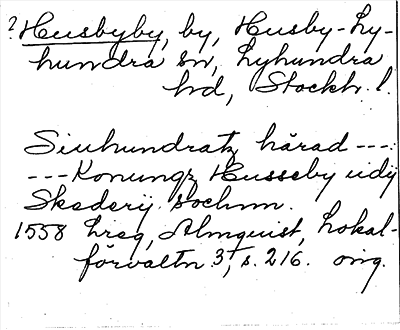 ? Husbyby, by, Husby-Ly-
hundra sn, Lyhundra
hd, Stockh. l.
Siuhundratz härad ---:
--- Konungz Husseby udij
Skederij sochnn.
1558 hreg, Almquist, Lokal-
förvaltn 3, s. 216. orig.